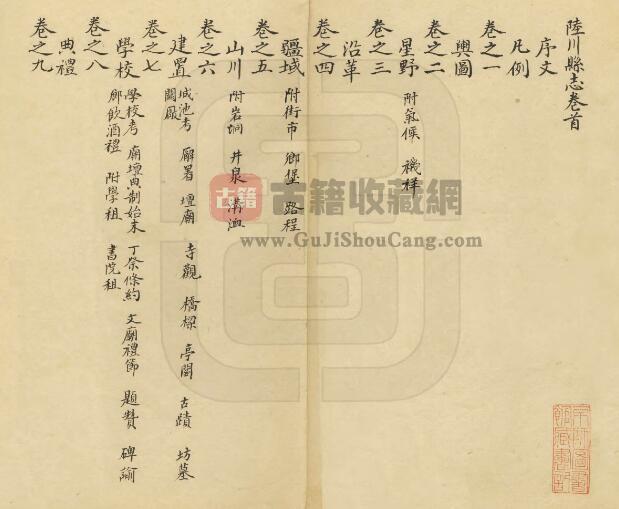 陸川縣志卷首
序文
凡例
卷之一
輿圖
卷之二
星野 附氣候 禨祥
卷之三
沿革
卷之四
疆域 附街市 鄉堡 路程
卷之五
山川 附岩峒 井泉 溝洫
卷之六
建置 城池考 廨署 壇廟 寺觀 橋樑 亭閣 古蹟 坊墓
關廠
卷之七
學校 學校考 廟壇典制始末 丁祭條約 文廟禮節 題贊 碑諭
鄉飲酒禮 附學租 書院租
卷之八
典禮
卷之九
古籍
古籍收藏網
www.GuJiShouCang.com